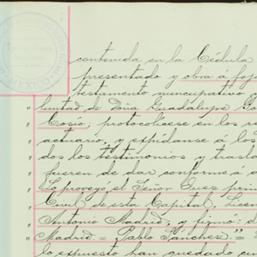 contenida en la Cédula
presentado y obra á foj
testamento nuncupativo
luntad de Dña Guadalupe
Cosío; protocolícese en los
actuario, y expídanse á los
dos los testimonios y trasla
fueren de dar conforme á
Lo proveyó el Señor Juez prim
Civil de esta Capital, Licen
Antonio Madrid, y firmó: d
Madrid = Pablo Sánchez" =
lo expuesto han quedado